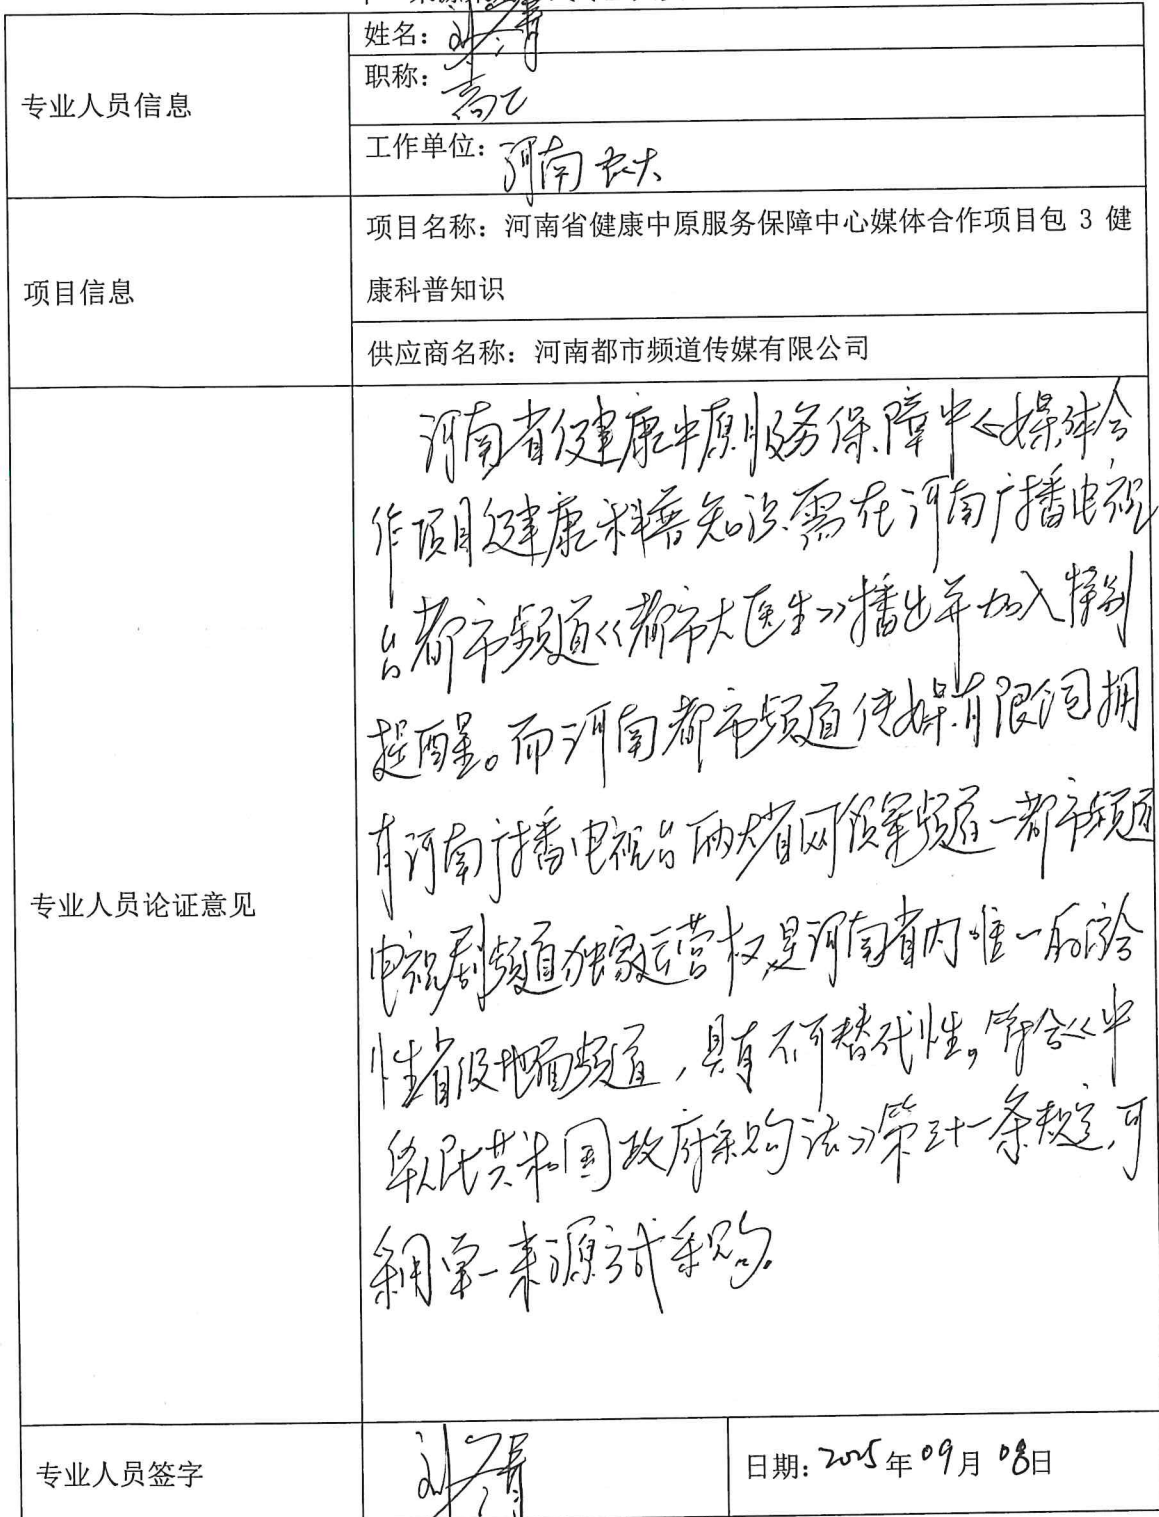 专业人员信息
姓名：
职称：高工
工作单位：河南农大
项目信息
项目名称：河南省健康中原服务保障中心媒体合作项目包 3 健
康科普知识
供应商名称：河南都市频道传媒有限公司
专业人员论证意见
河南省健康中原服务保障中心媒体合
作项目健康科普知识需在河南广播电视
台都市频道《都市大医生》播出并加入特别
提醒。而河南都市频道传媒有限公司拥
有河南广播电视台两大省网领军频道—都市频道
电视剧频道独家运营权，是河南省内唯一的综合
性省级地面频道，具有不可替代性。符合《中
华人民共和国政府采购法》第三十一条规定，可
采用单一来源方式采购。
专业人员签字
日期：2025年09月08日